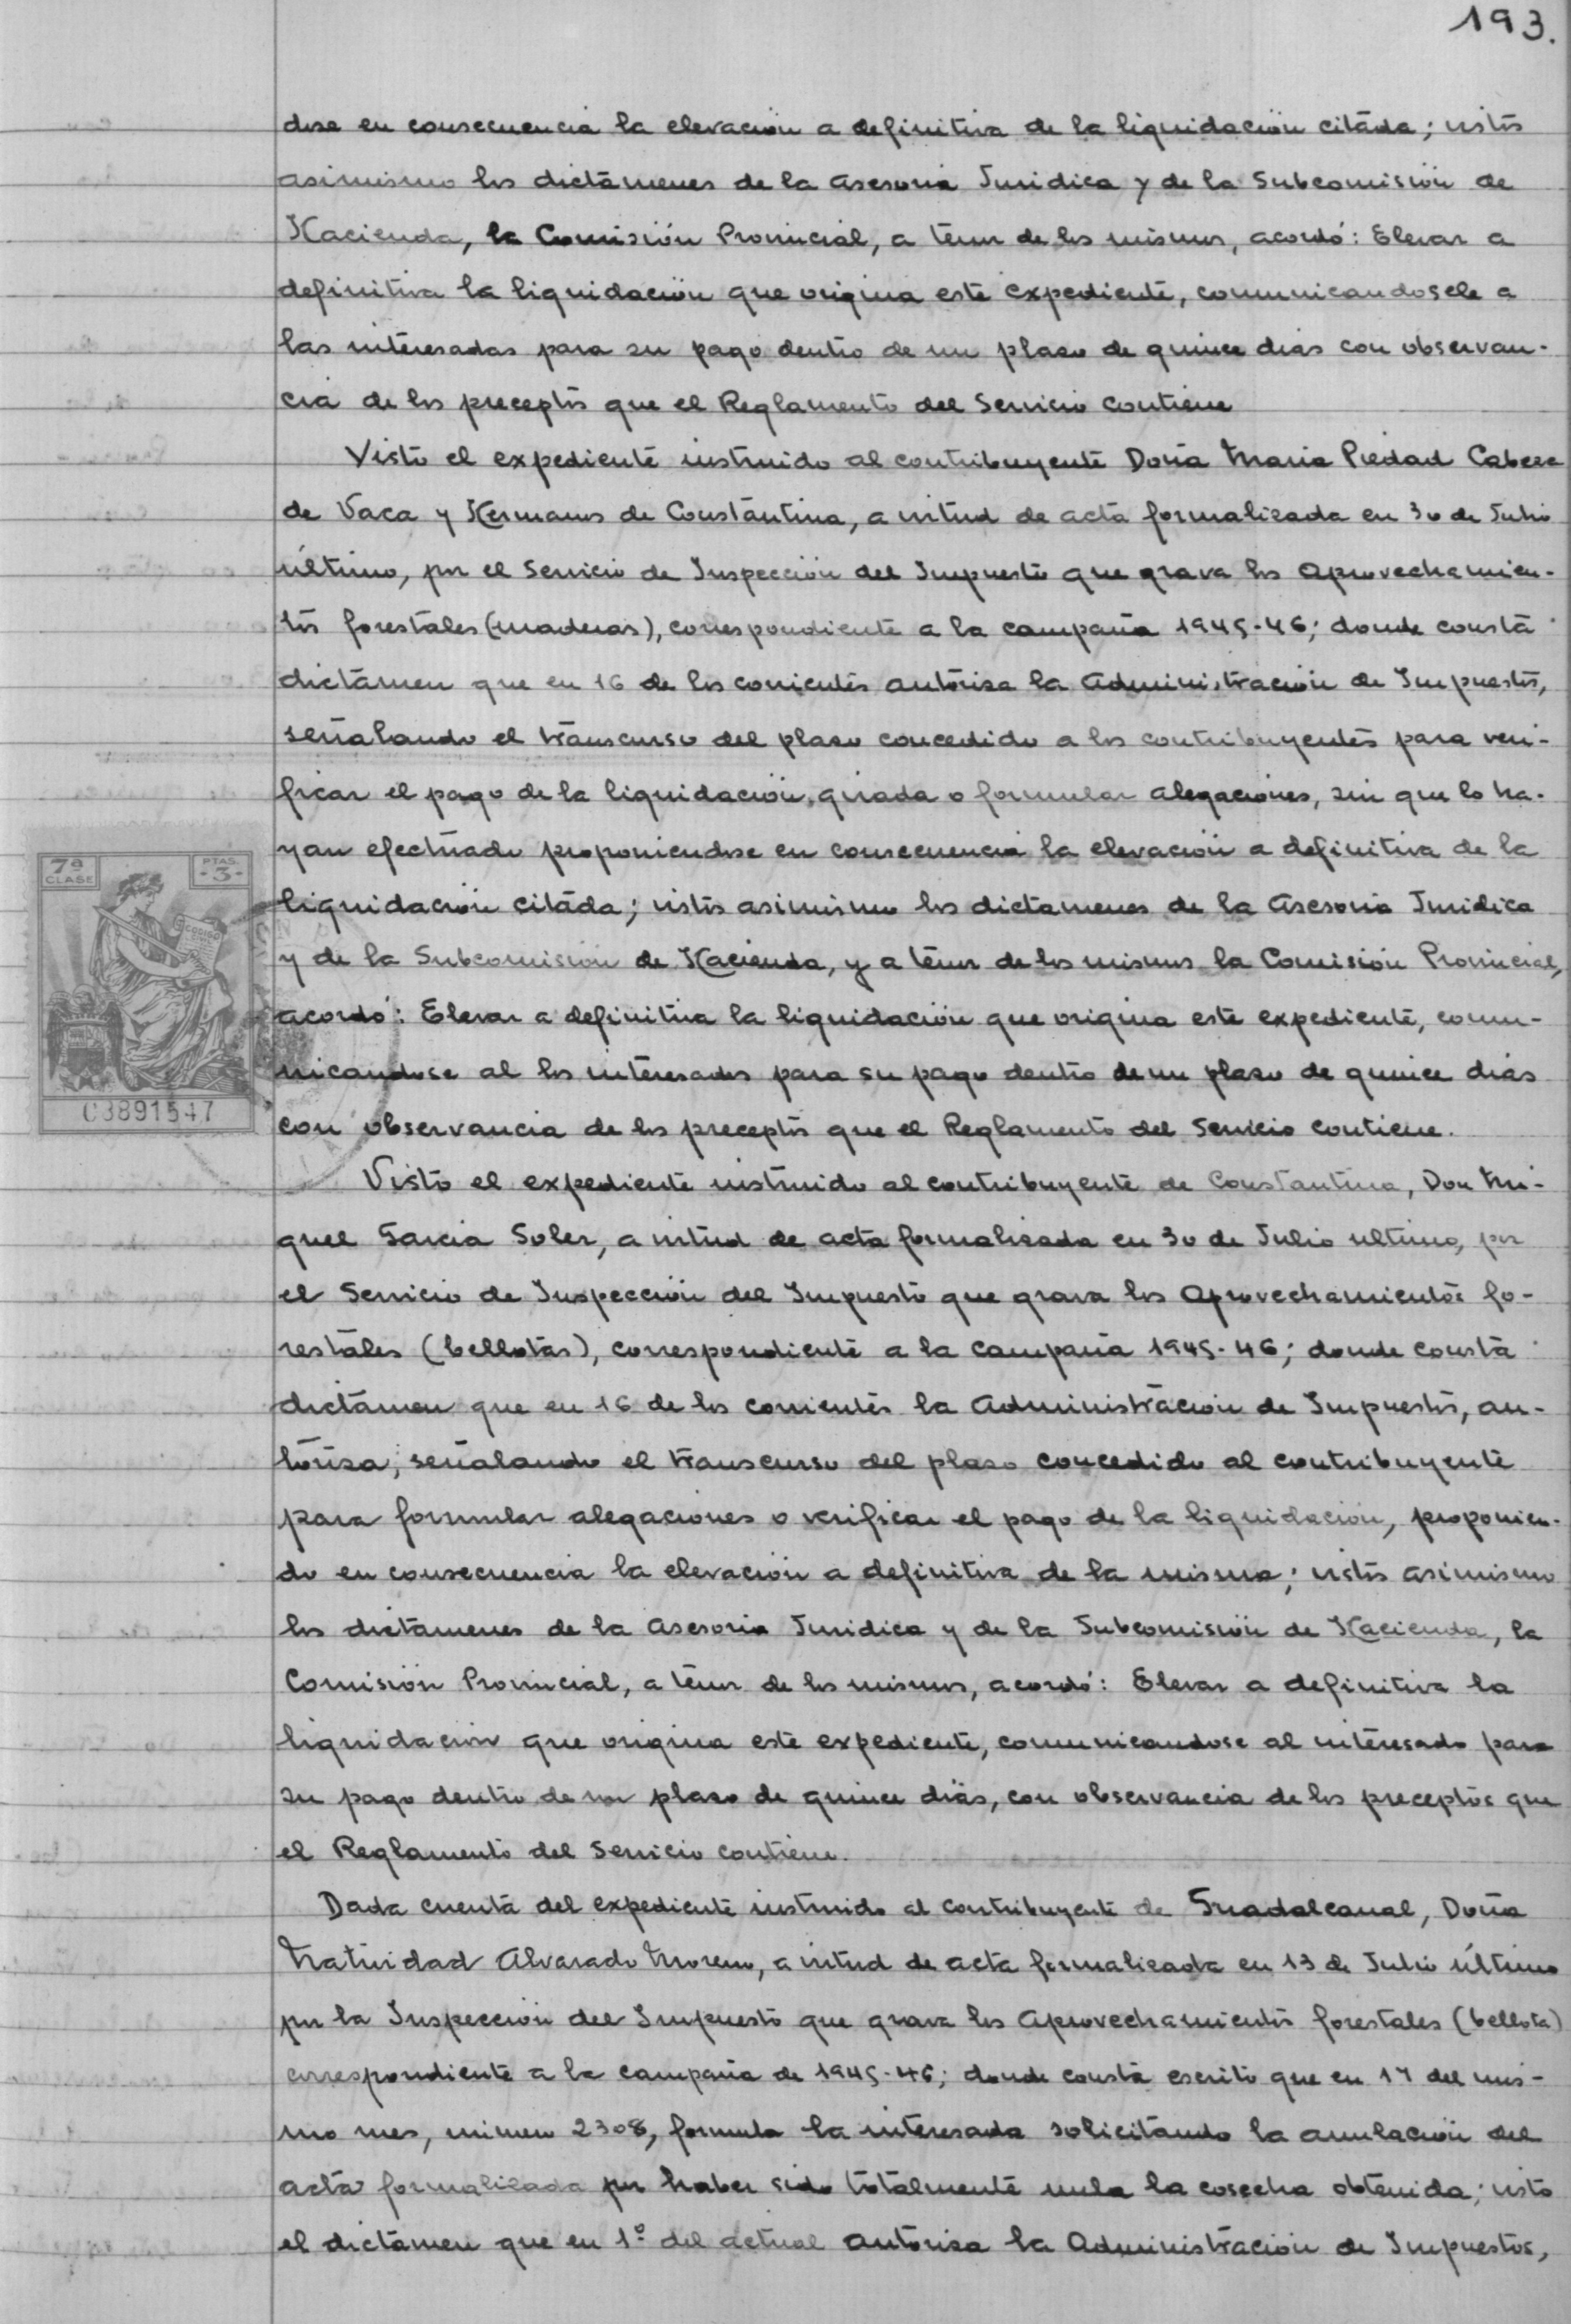 193.
dose en consecuencia la elevación a definitiva de la liquidación citada; vistos
asimismo los dictámenes de la Asesoria Juridica y de la Subcomisión de
Hacienda, la Comisión Provincial, a tenor de los mismos, acordó: Elevar a
definitiva la liquidación que origina este expediente, comunicandosele a
las interesadas para su pago dentro de un plazo de quince dias con observan-
cia de los preceptos que el Reglamento del Servicio contiene
Visto el expediente instruido al contribuyente Doña Maria Piedad Cabeza
de Vaca y Hermanos de Constantina, a virtud de acta formalizada en 30 de Julio
último, por el Servicio de Inspección del Impuesto que grava los Aprovechamien-
tos forestales (maderas), correspondiente a la campaña 1945-46; donde consta
dictámen que en 16 de los corrientes autoriza la Administración de Impuestos,
señalando el transcurso del plazo concedido a los contribuyentes para veri-
ficar el pago de la liquidación, girada o formular alegaciones, sin que lo ha-
yan efectuado proponiendose en consecuencia la elevación a definitiva de la
liquidación citada; vistos asimismo los dictamenes de la Asesoria Juridica
y de la Subcomisión de Hacienda, y a tenor de los mismos la Comisión Provincial,
acordó: Elevar a definitiva la liquidación que origina este expediente, comu-
nicandose al los interesados para su pago dentro de un plazo de quince dias
con observancia de los preceptos que el Reglamento del Servicio contiene.
Visto el expediente instruido al contribuyente de Constantina, Don Mi-
guel Garcia Soler, a virtud de acta formalizada en 30 de Julio ultimo, por
el Servicio de Inspección del Impuesto que grava los Aprovechamientos fo-
restales (bellotas), correspondiente a la campaña 1945-46; donde consta
dictámen que en 16 de los corrientes la Administración de Impuestos, au-
toriza, señalando el transcurso del plazo concedido al contribuyente
para formular alegaciones o verificar el pago de la liquidación, proponien-
do en consecuencia la elevación a definitiva de la misma; vistos asimismo
los dictámenes de la Asesoria Juridica y de la Subcomisión de Hacienda, la
Comisión Provincial, a tenor de los mismos, acordó: Elevar a definitiva la
liquidación que origina este expediente, comunicandose al interesado para
su pago dentro de un plazo de quince dias, con observancia de los preceptos que
el Reglamento del Servicio contiene.
Dada cuenta del expediente instruido al contribuyente de Guadalcanal, Doña
Natividad Alvarado Moreno, a virtud de acta formalizada en 13 de Julio último
por la Inspección del Impuesto que grava los Aprovechamientos forestales (bellota)
correspondiente a la campaña de 1945-46; donde consta escrito que en 17 del mis-
mo mes, número 2308, formula la interesada solicitando la anulación del
acta formalizada por haber sido totalmente nula la cosecha obtenida; visto
el dictámen que en 1º del actual autoriza la Administración de Impuestos,
7ª CLASE
PTAS. -3-
CODIGO
03891547